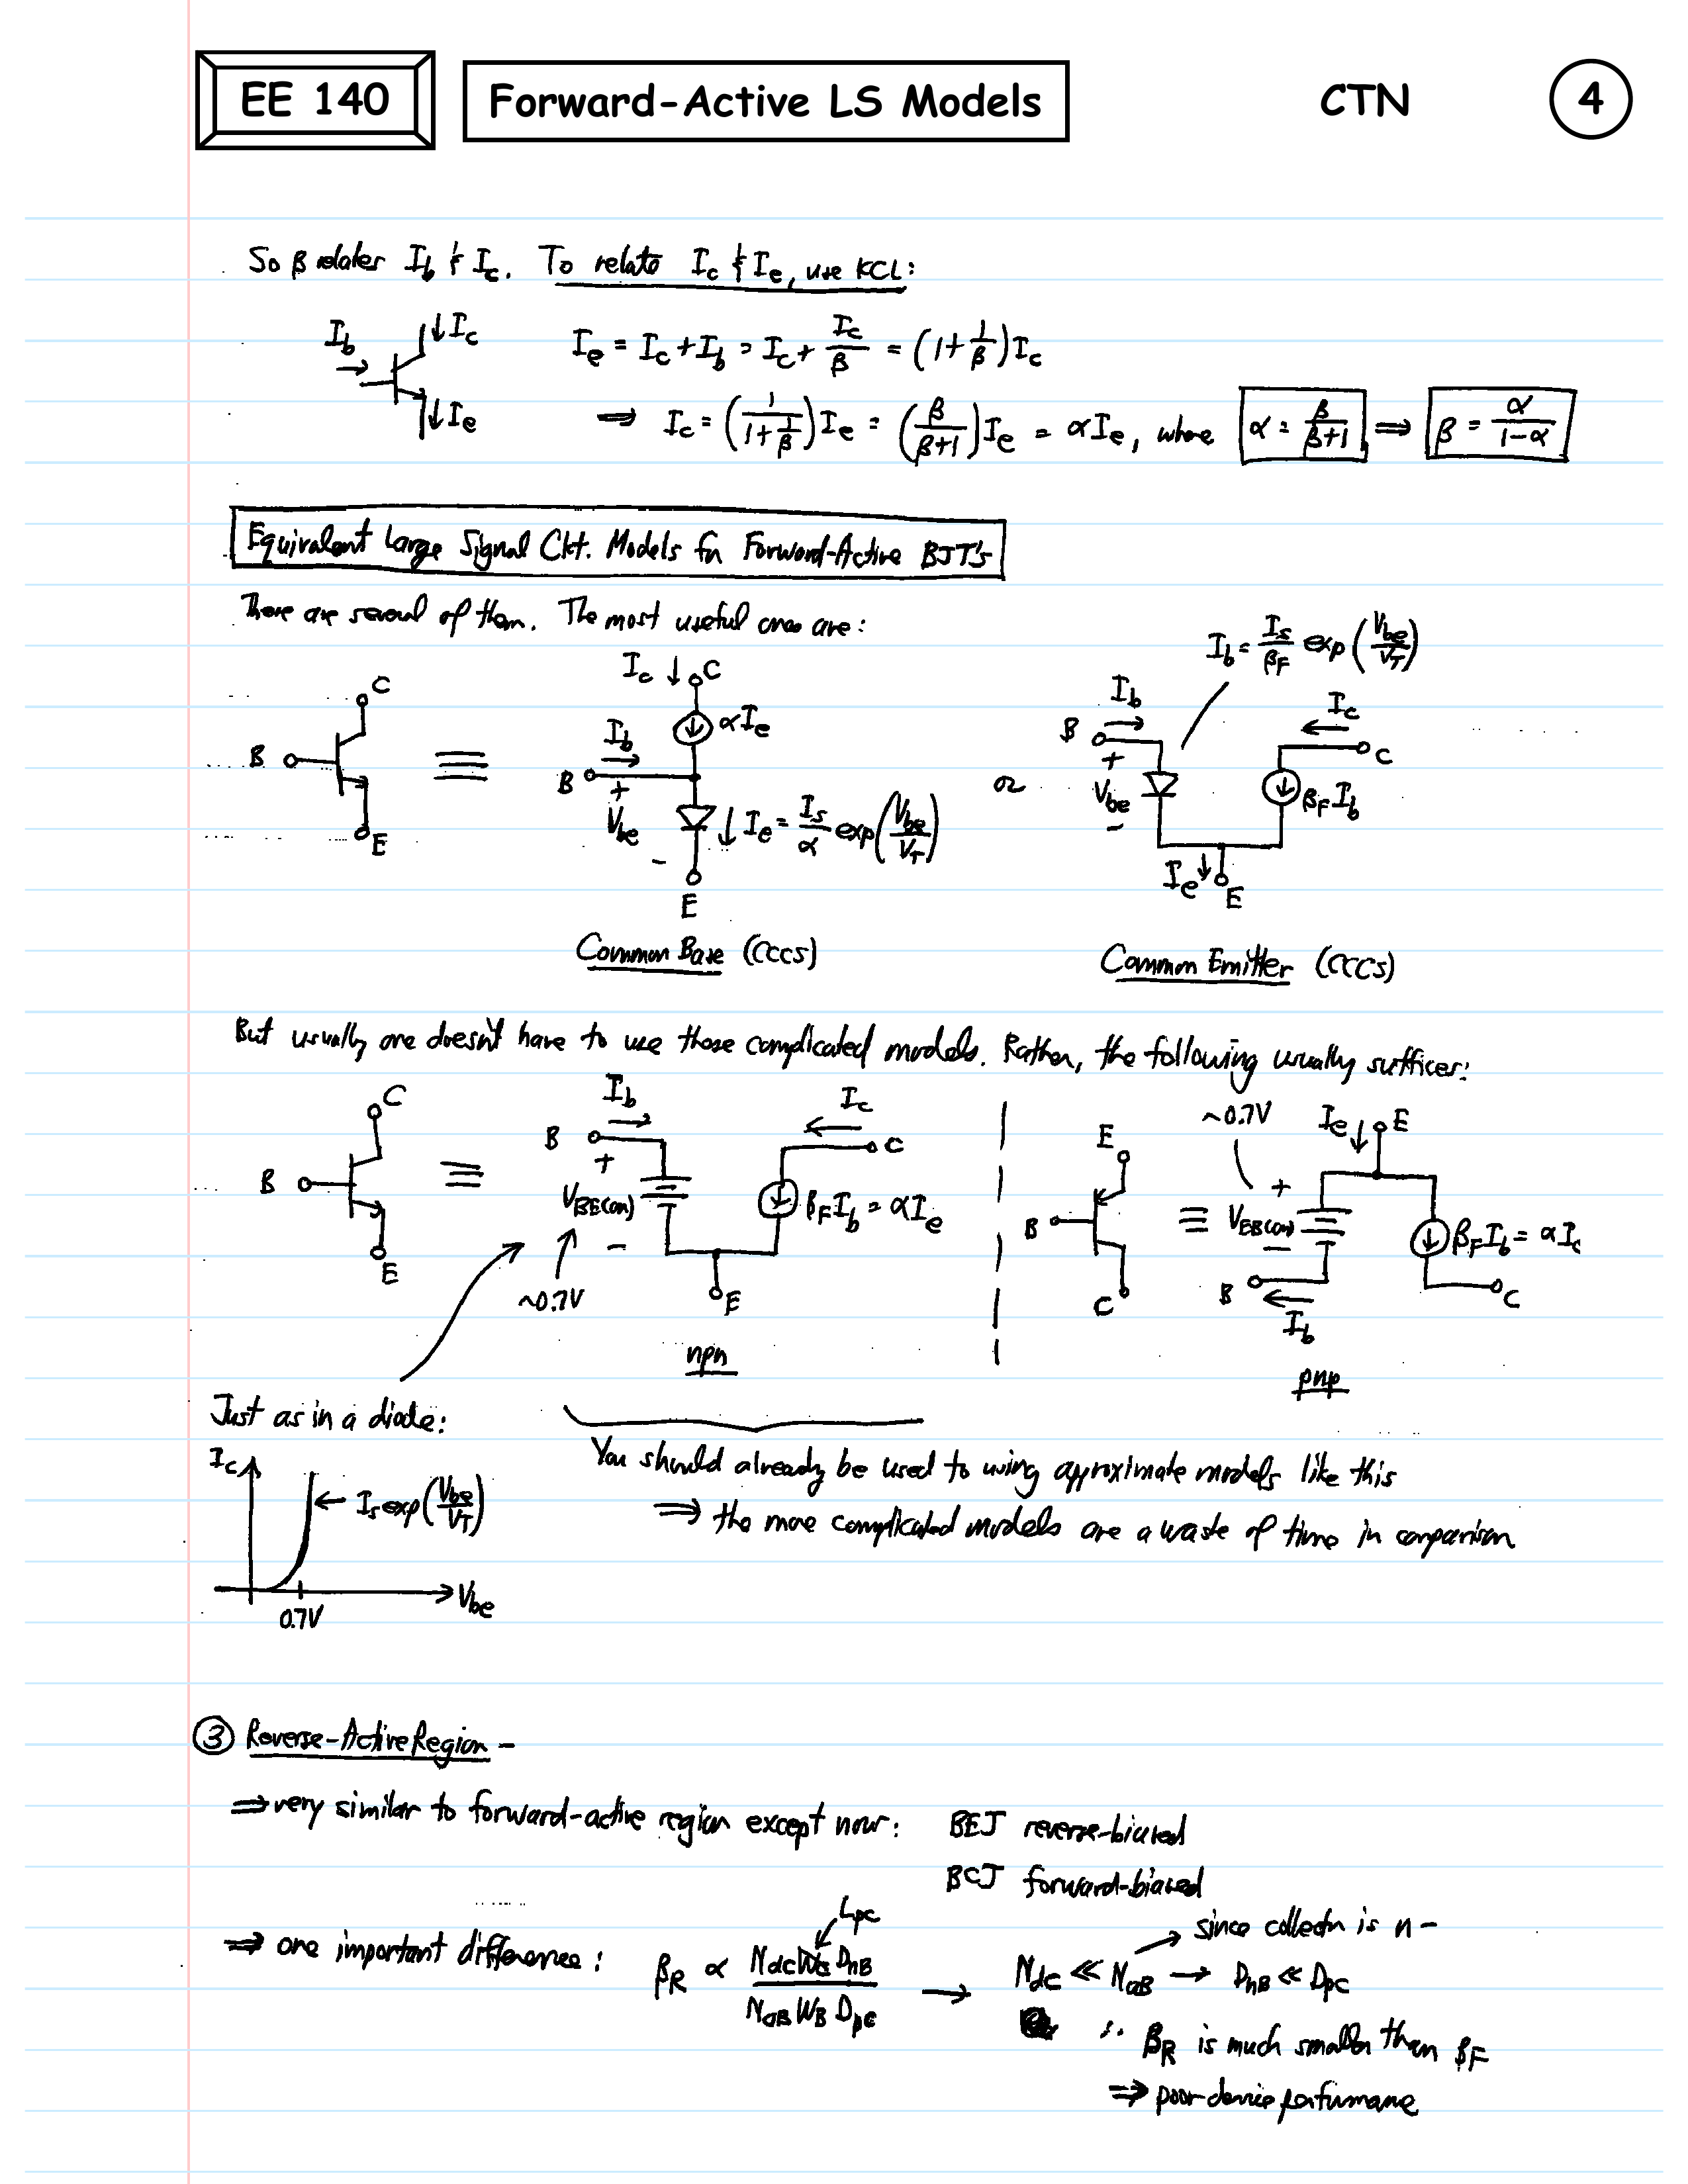 EE 140
Forward-Active LS Models
CTN
4
So β relates I_b & I_c. To relate I_c & I_e, use KCL:
I_b
↓I_c
↓I_e
I_e = I_c + I_b = I_c + I_c/β = (1 + 1/β)I_c
⇒ I_c = (1/(1+1/β))I_e = (β/(β+1))I_e = αI_e, where α = β/(β+1) ⇒ β = α/(1-α)
Equivalent Large Signal Ckt. Models for Forward-Active BJT's
There are several of them. The most useful ones are:
C
B
E
≡
I_c ↓ C
αI_e
I_b
B
+
V_be
-
↓ I_e = I_s/α exp(V_be/V_T)
E
Common Base (CCCS)
or
I_b = I_s/β_F exp(V_be/V_T)
I_b
B
+
V_be
-
I_c
C
β_F I_b
I_e ↓ E
Common Emitter (CCCS)
But usually one doesn't have to use these complicated models. Rather, the following usually suffices:
C
B
E
≡
I_b
B
+
V_BE(on)
-
~0.7V
I_c
C
β_F I_b = αI_e
E
npn
E
B
C
≡
~0.7V
I_e ↓ E
+
V_EB(on)
-
β_F I_b = αI_c
B
I_b
C
pnp
Just as in a diode:
I_c
← I_s exp(V_be/V_T)
V_be
0.7V
You should already be used to using approximate models like this
⇒ the more complicated models are a waste of time in comparison
③ Reverse-Active Region -
⇒ very similar to forward-active region except now: BEJ reverse-biased
BCJ forward-biased
L_pc
since collector is n-
⇒ one important difference: β_R ∝ N_dC W_E D_nB / N_aB W_B D_pC → N_dC ≪ N_aB → D_nB ≪ D_pC
∴ β_R is much smaller than β_F
⇒ poor device performance